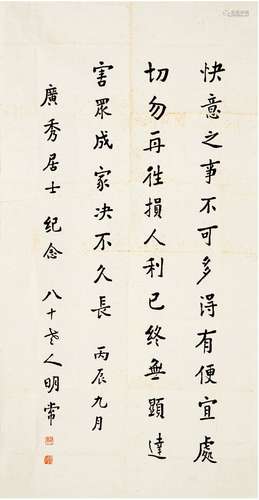 快意之事不可多得有便宜處
切勿再徃損人利已終無顯達
害眾成家决不久長 丙辰九月
廣秀居士紀念 八十老人明常